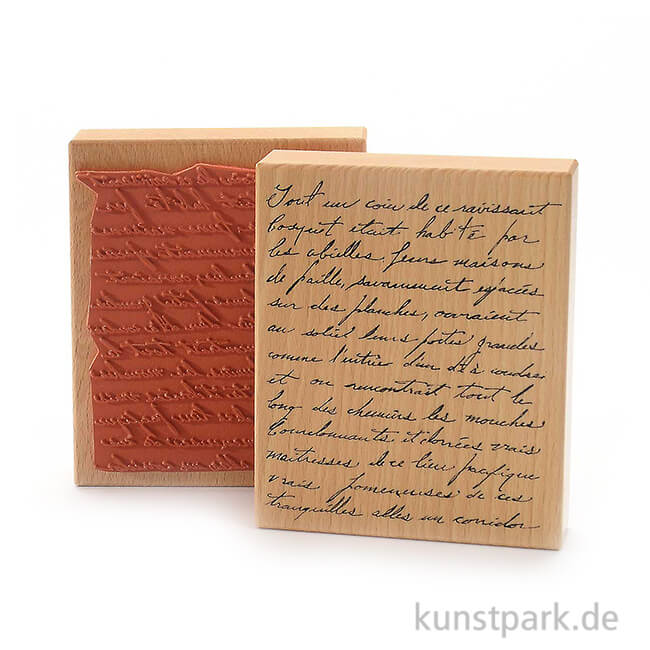 Tout un coin de ce ravissant
bosquet etait habité par
les abielles. Leurs maisons
de paille, savamment espacées
sur des planches, ouvraient
au soleil leurs portes grandes
comme l'entrée d'un dé à coudre,
et on rencontrait tout le
long des chemins les mouches
bourdonnants, et dorées vrais
maitresses de ce lieu pacifique
vrais promeneuses de ces
tranquilles alles en corridor
kunstpark.de